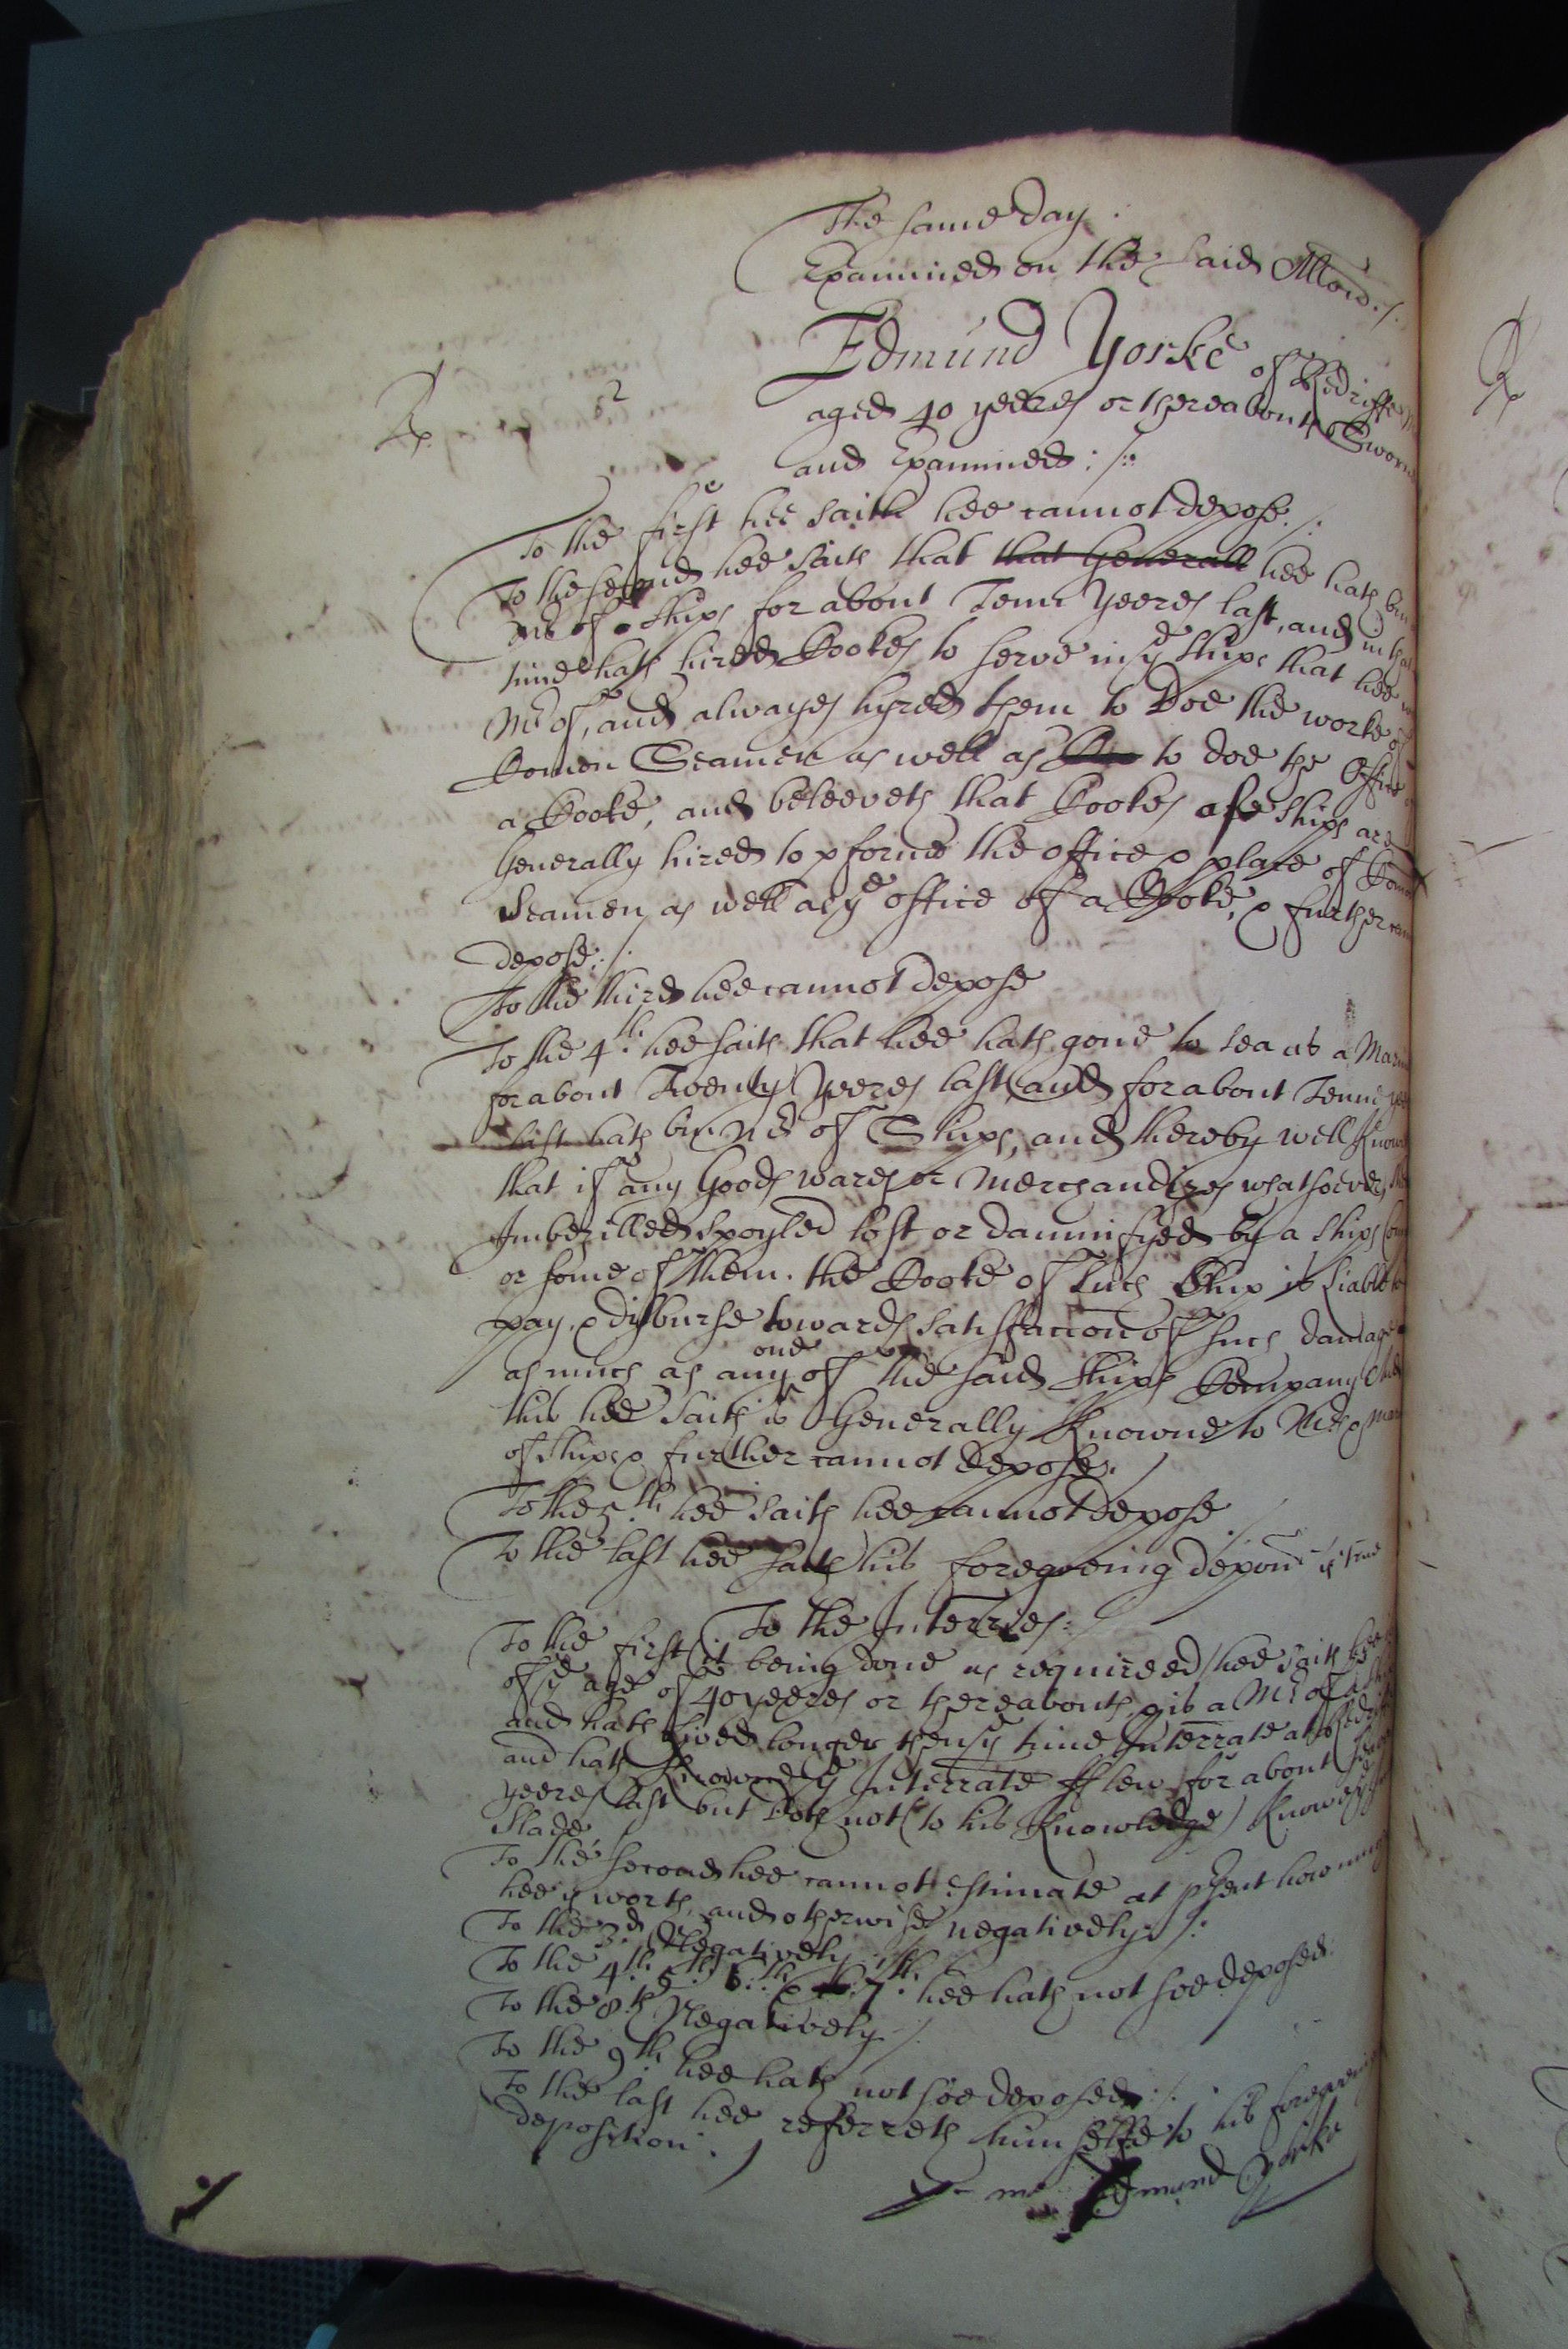 The same day.
Examined on the said Allon ./.
Rp. 2 Edmund Yorke of Redriffe
aged 40 yeeres or thereabouts Sworne
and Examined :/:
To the first hee saith hee cannot depose ./.
To the second hee saith that that Generall hee hath bin
Mr of Ships for about Tenn yeeres last, and in that
time hath hired Cookes to serve in ye Ships that hee
Mr of, and alwayes hyred them to Doe the worke of
Comon Seamen as well as to doe the Office
a Cooke, and beleeveth that Cookes of Ships are
Generally hired to pforme the office & place of
Seamen as well as ye office of a Cooke, & further
depose ./.
To the third hee cannot depose
To the 4th. hee saith that hee hath gone to sea as a
for about Twenty yeeres last, and for about Tenne
last hath bin Mr of Ships, and thereby well
that if any Goods wares or Merchandizes whatsoever
Imbezilled spoyled lost or damnifyed by a ships
or some of them. the Cooke of such Ship is liable
pay & disburse towards satisfaction of such damage
as much as any one of the said Ships Company
this hee saith is Generally Knowne to Mrs &
of Ships & further cannot depose. /
To the 5th. hee saith hee cannot depose ./.
To the last hee saith his foregoeing depon is true
To the Interries:
To the first (it being done as required) hee saith hee
of ye age of 40 yeeres or thereabouts, & is a Mr of
and hath lived longer then ye time Interrate at
and hath knowne ye Interrate for about
yeeres last but doth not (to his Knowledge) Know
Slade
To the second hee cannot estimate at psent how
hee is worth, and otherwise negatively :/:
To the 3d. Negatively
To the 4th. 5th. 6th. & 7th. hee hath not soe deposed.
To the 8th Negatively ./
To the 9th. hee hath not soe deposed ./.
To the last hee referreth himselfe to his
deposition. /
Edmund Yorke